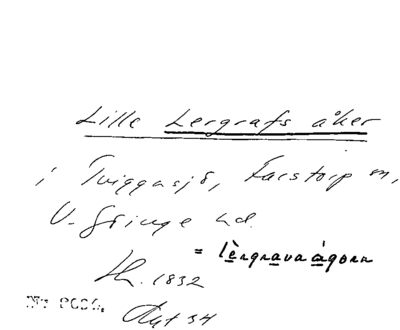 Lille Lergrafs åker
i Tviggasjö, Farstorp sn,
V. Göinge hd.
= lèrgravaágorn
Sk. 1832
Akt 34